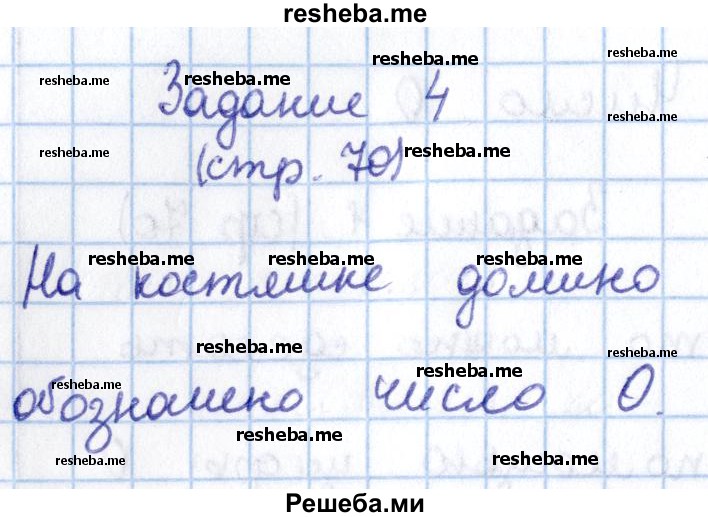 resheba.me
resheba.me resheba.me resheba.me resheba.me
Задание 4
resheba.me
resheba.me resheba.me
(стр. 70)
resheba.me resheba.me resheba.me
На костяшке домино
resheba.me resheba.me
resheba.me resheba.me
обозначено число 0.
resheba.me
resheba.me resheba.me
Решеба.ми